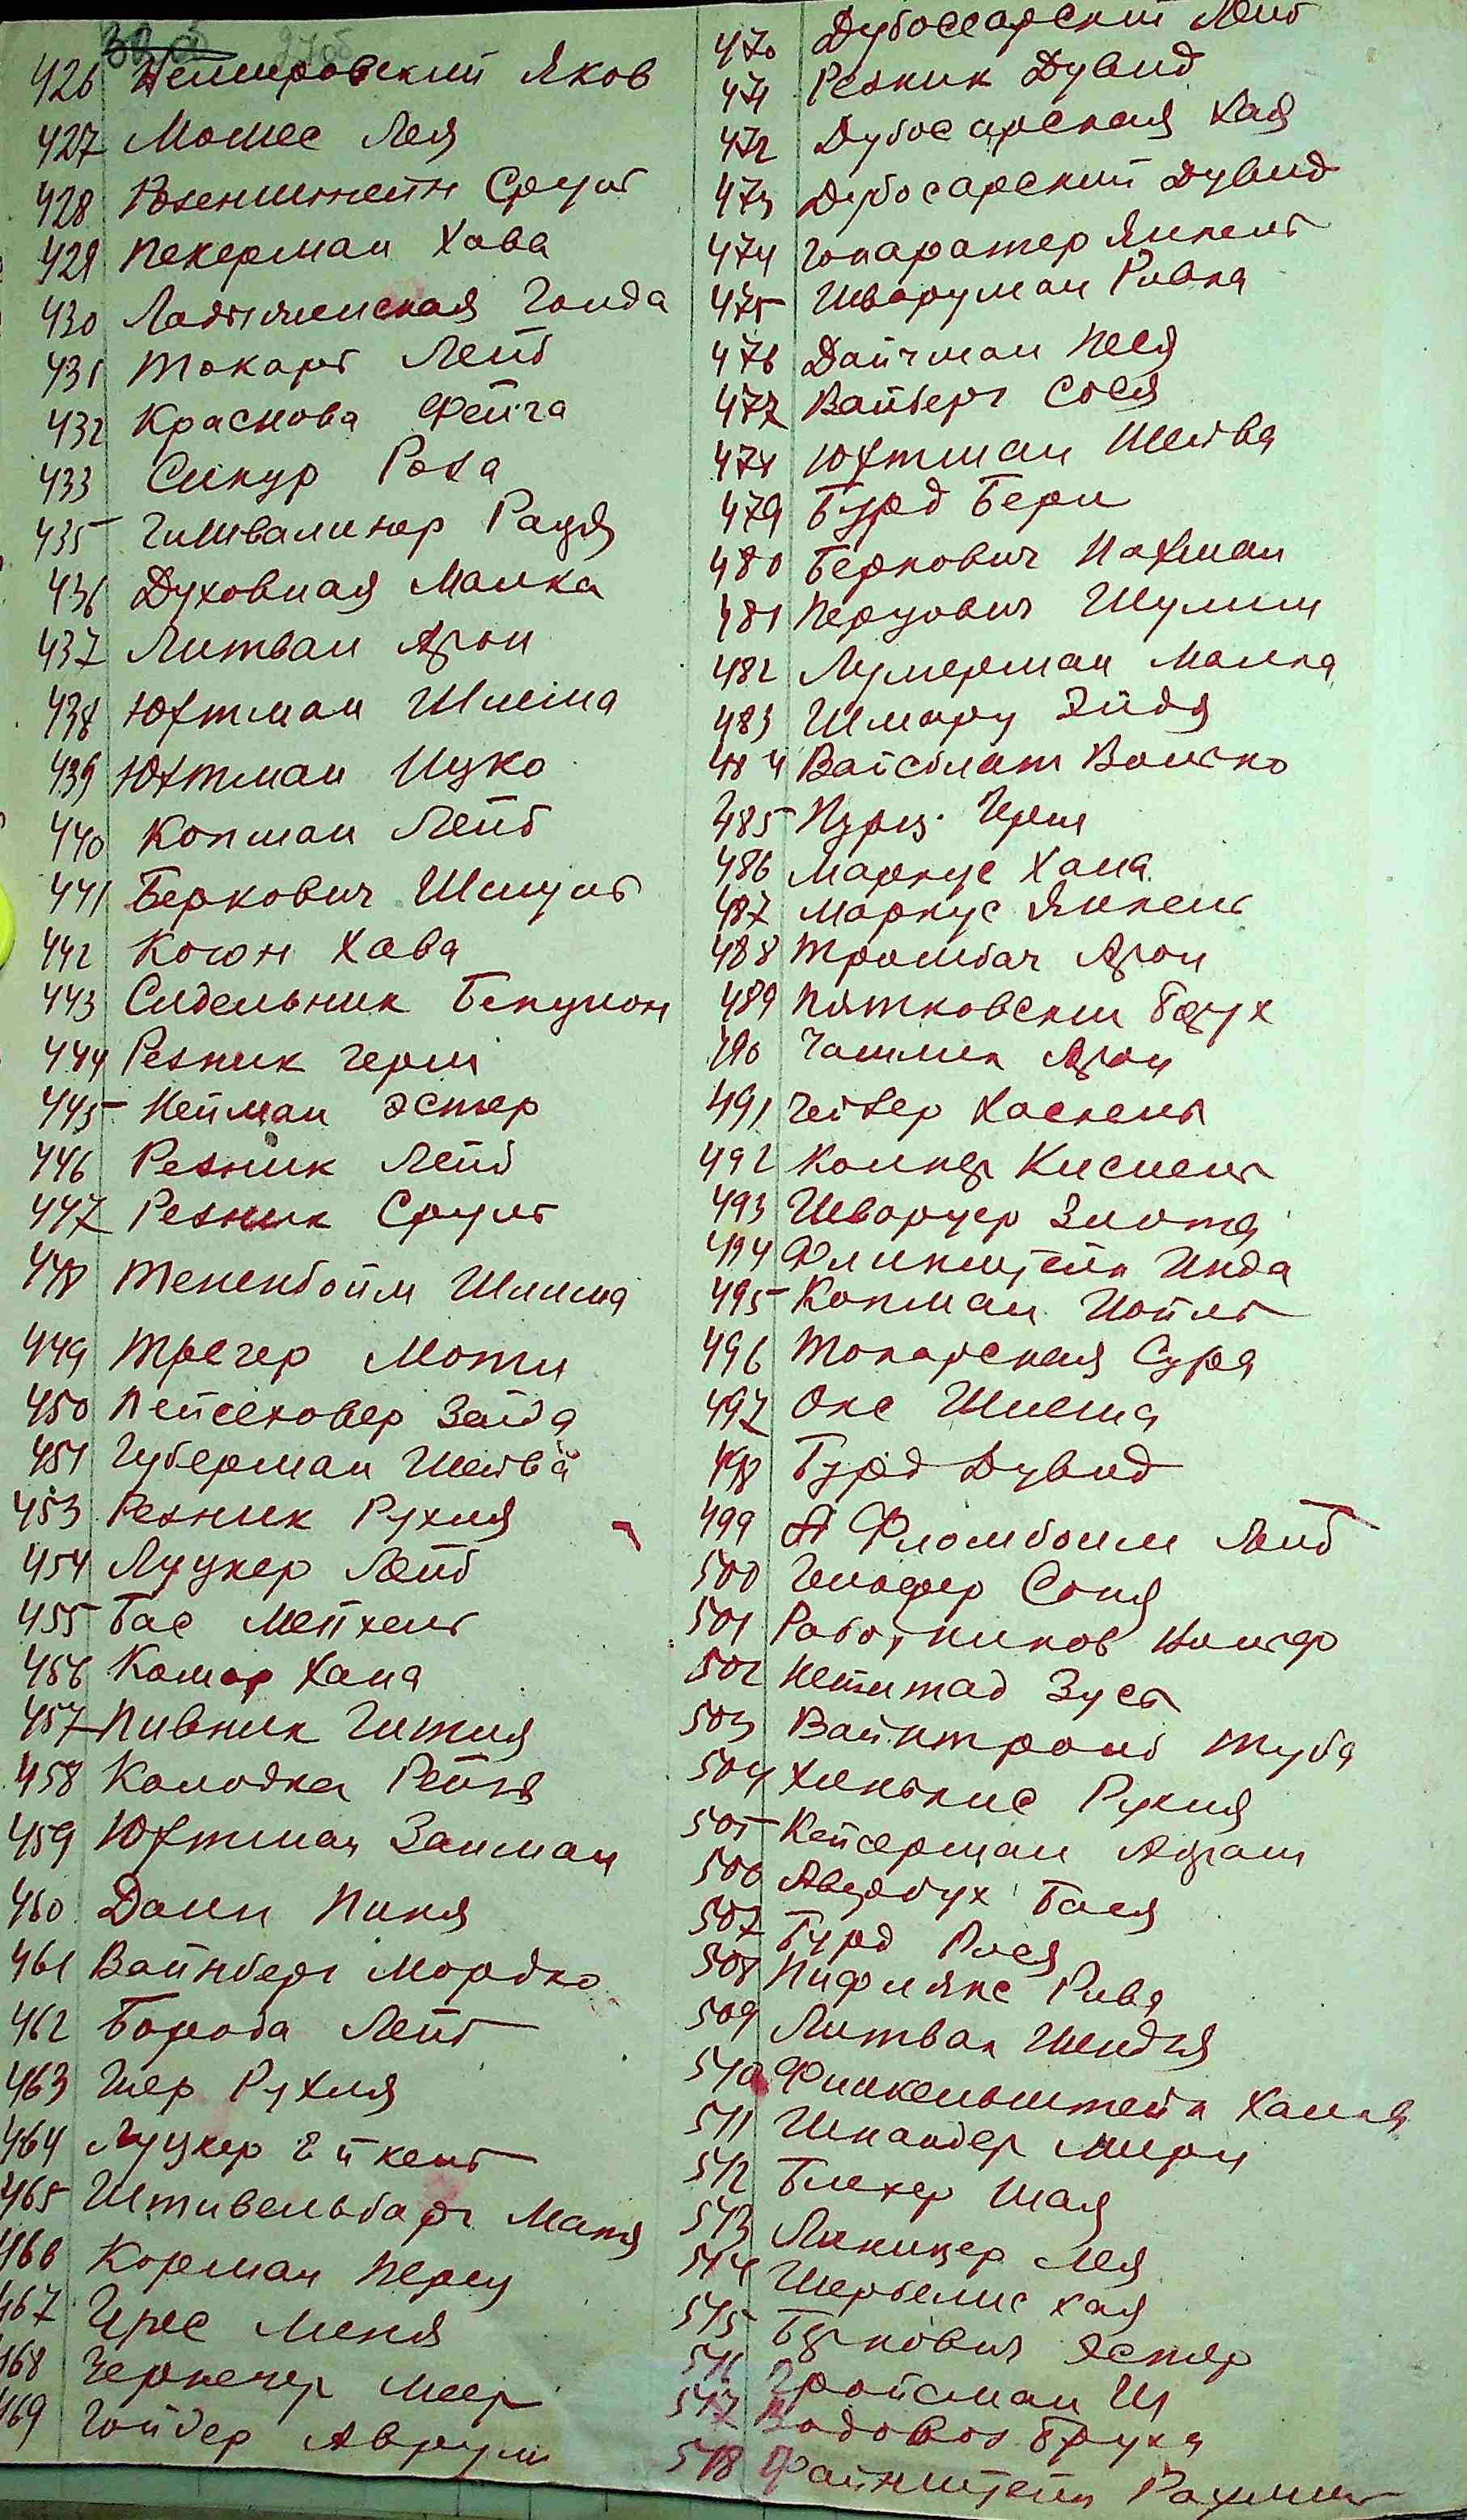 426 Немировский Яков
427 Мошес Лея
428 Розенштейн Сруль
429 Пекерман Хава
430 Ладыженская Голда
431 Токарь Лейб
432 Краснова Фейга
433 Сикур Роза
435 Раця
436 Духовная Малка
437 Литван Арон
438 Юхтман Шлёма
439 Юхтман Ицко
440 Копман Лейб
441 Беркович Шмуль
442 Когон Хава
443 Сидельник Бенцион
444 Резник Герш
445 Нейман Эстер
446 Резник Лейб
447 Резник Сруль
448 Тененбойм Шлима
449 Трегер Моти
450 Пейсеховер Зайда
451 Губерман Шейва
453 Резник Рухля
454 Луцкер Лейб
455 Бас Мейхель
456 Комар Хана
457 Пивник Гитля
458 Колодка Рейзя
459 Юхтман Залман
460 Долин Пиня
461 Вайнберг Мордко
462 Борода Лейб
463 Шер Рухля
464 Луцкер
465 Штивельбарг Маня
466 Корман Перец
467 Меня
468 Меер
469 Гойвер Аврум
470 Дубоссарский Лейб
471 Резник Дувид
472 Дубосарская Хая
473 Дубосарский Дувид
474 Янкель
475 Шварцман Ривка
476 Дайчман Песя
477 Вайберг Сося
478 Юхтман Шейва
479 Бурд Бери
480 Беркович Нахман
481 Перцович Шулим
482 Лумерман Малка
483 Шмару Эйдя
484 Вайсблат Волько
485 Пурц Герш
486 Маркус Хана
487 Маркус Янкель
488 Тромбач Арон
489 Пятковский Борух
490 Арон
491 Гейвер Хаскель
492 Кисиель
493 Шварцер Злота
494 Финкштейн Инда
495 Копман Йойль
496 Токарская Сура
497 Окс Шлема
498 Бурд Дувид
499 Фломбойм Лейб
500 Гельфер Соня
501 Работников
502 Нейштад Зусь
503 Вайнтроиб Туба
504 Хинькис Рухля
505 Кейсерман Абрам
506 Авербух Бася
507 Бурд Рися
508 Рива
509 Литвак Шендля
510 Финкельштейн Ханна
511 Шнайдер Мири
512 Блехер Шая
513 Линицер Лея
514 Шербелис Хая
515 Беркович Эстер
516 Гройсман Ш
517 Водовоз Бруха
518 Файнштейн Рахмиль